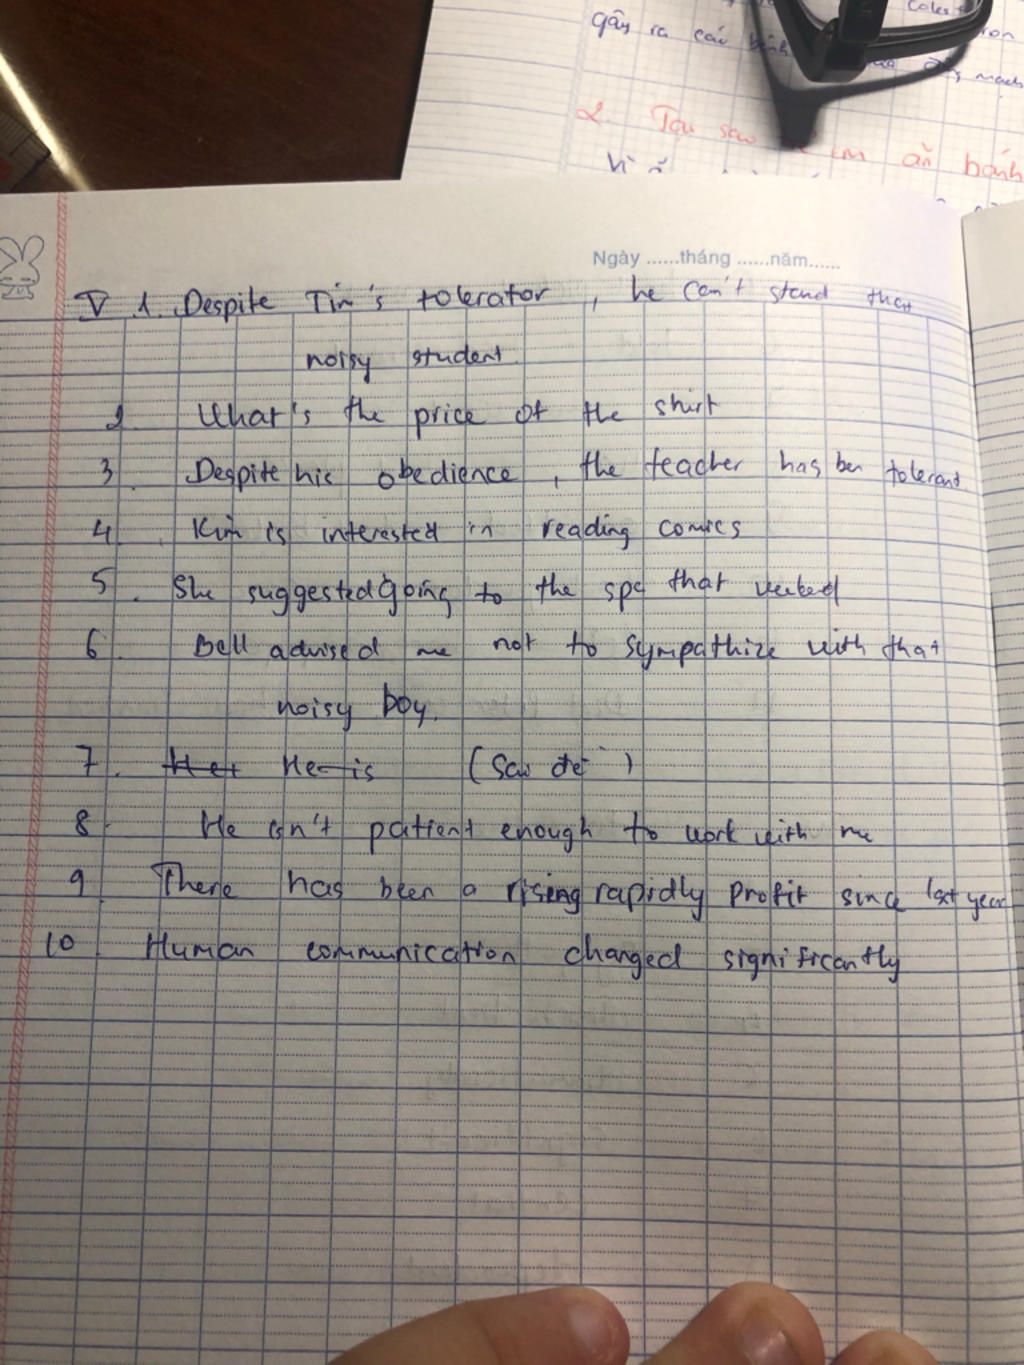 gây ra các bệnh
mạch
2. Tại sao em ăn bánh
vì
Ngày ......tháng ......năm......
V 1. Despite Tim's tolerator, he can't stand that
noisy student.
2 What's the price of the shirt
3. Despite his obedience, the teacher has ben tolerant.
4. Kim is interested in reading comics
5. She suggested going to the spa that
6. Bell advised me not to sympathize with that
noisy boy.
7. He is (sai đề)
8. He isn't patient enough to work with me
9. There has been a rising rapidly profit since last year
10 Human communication changed significantly